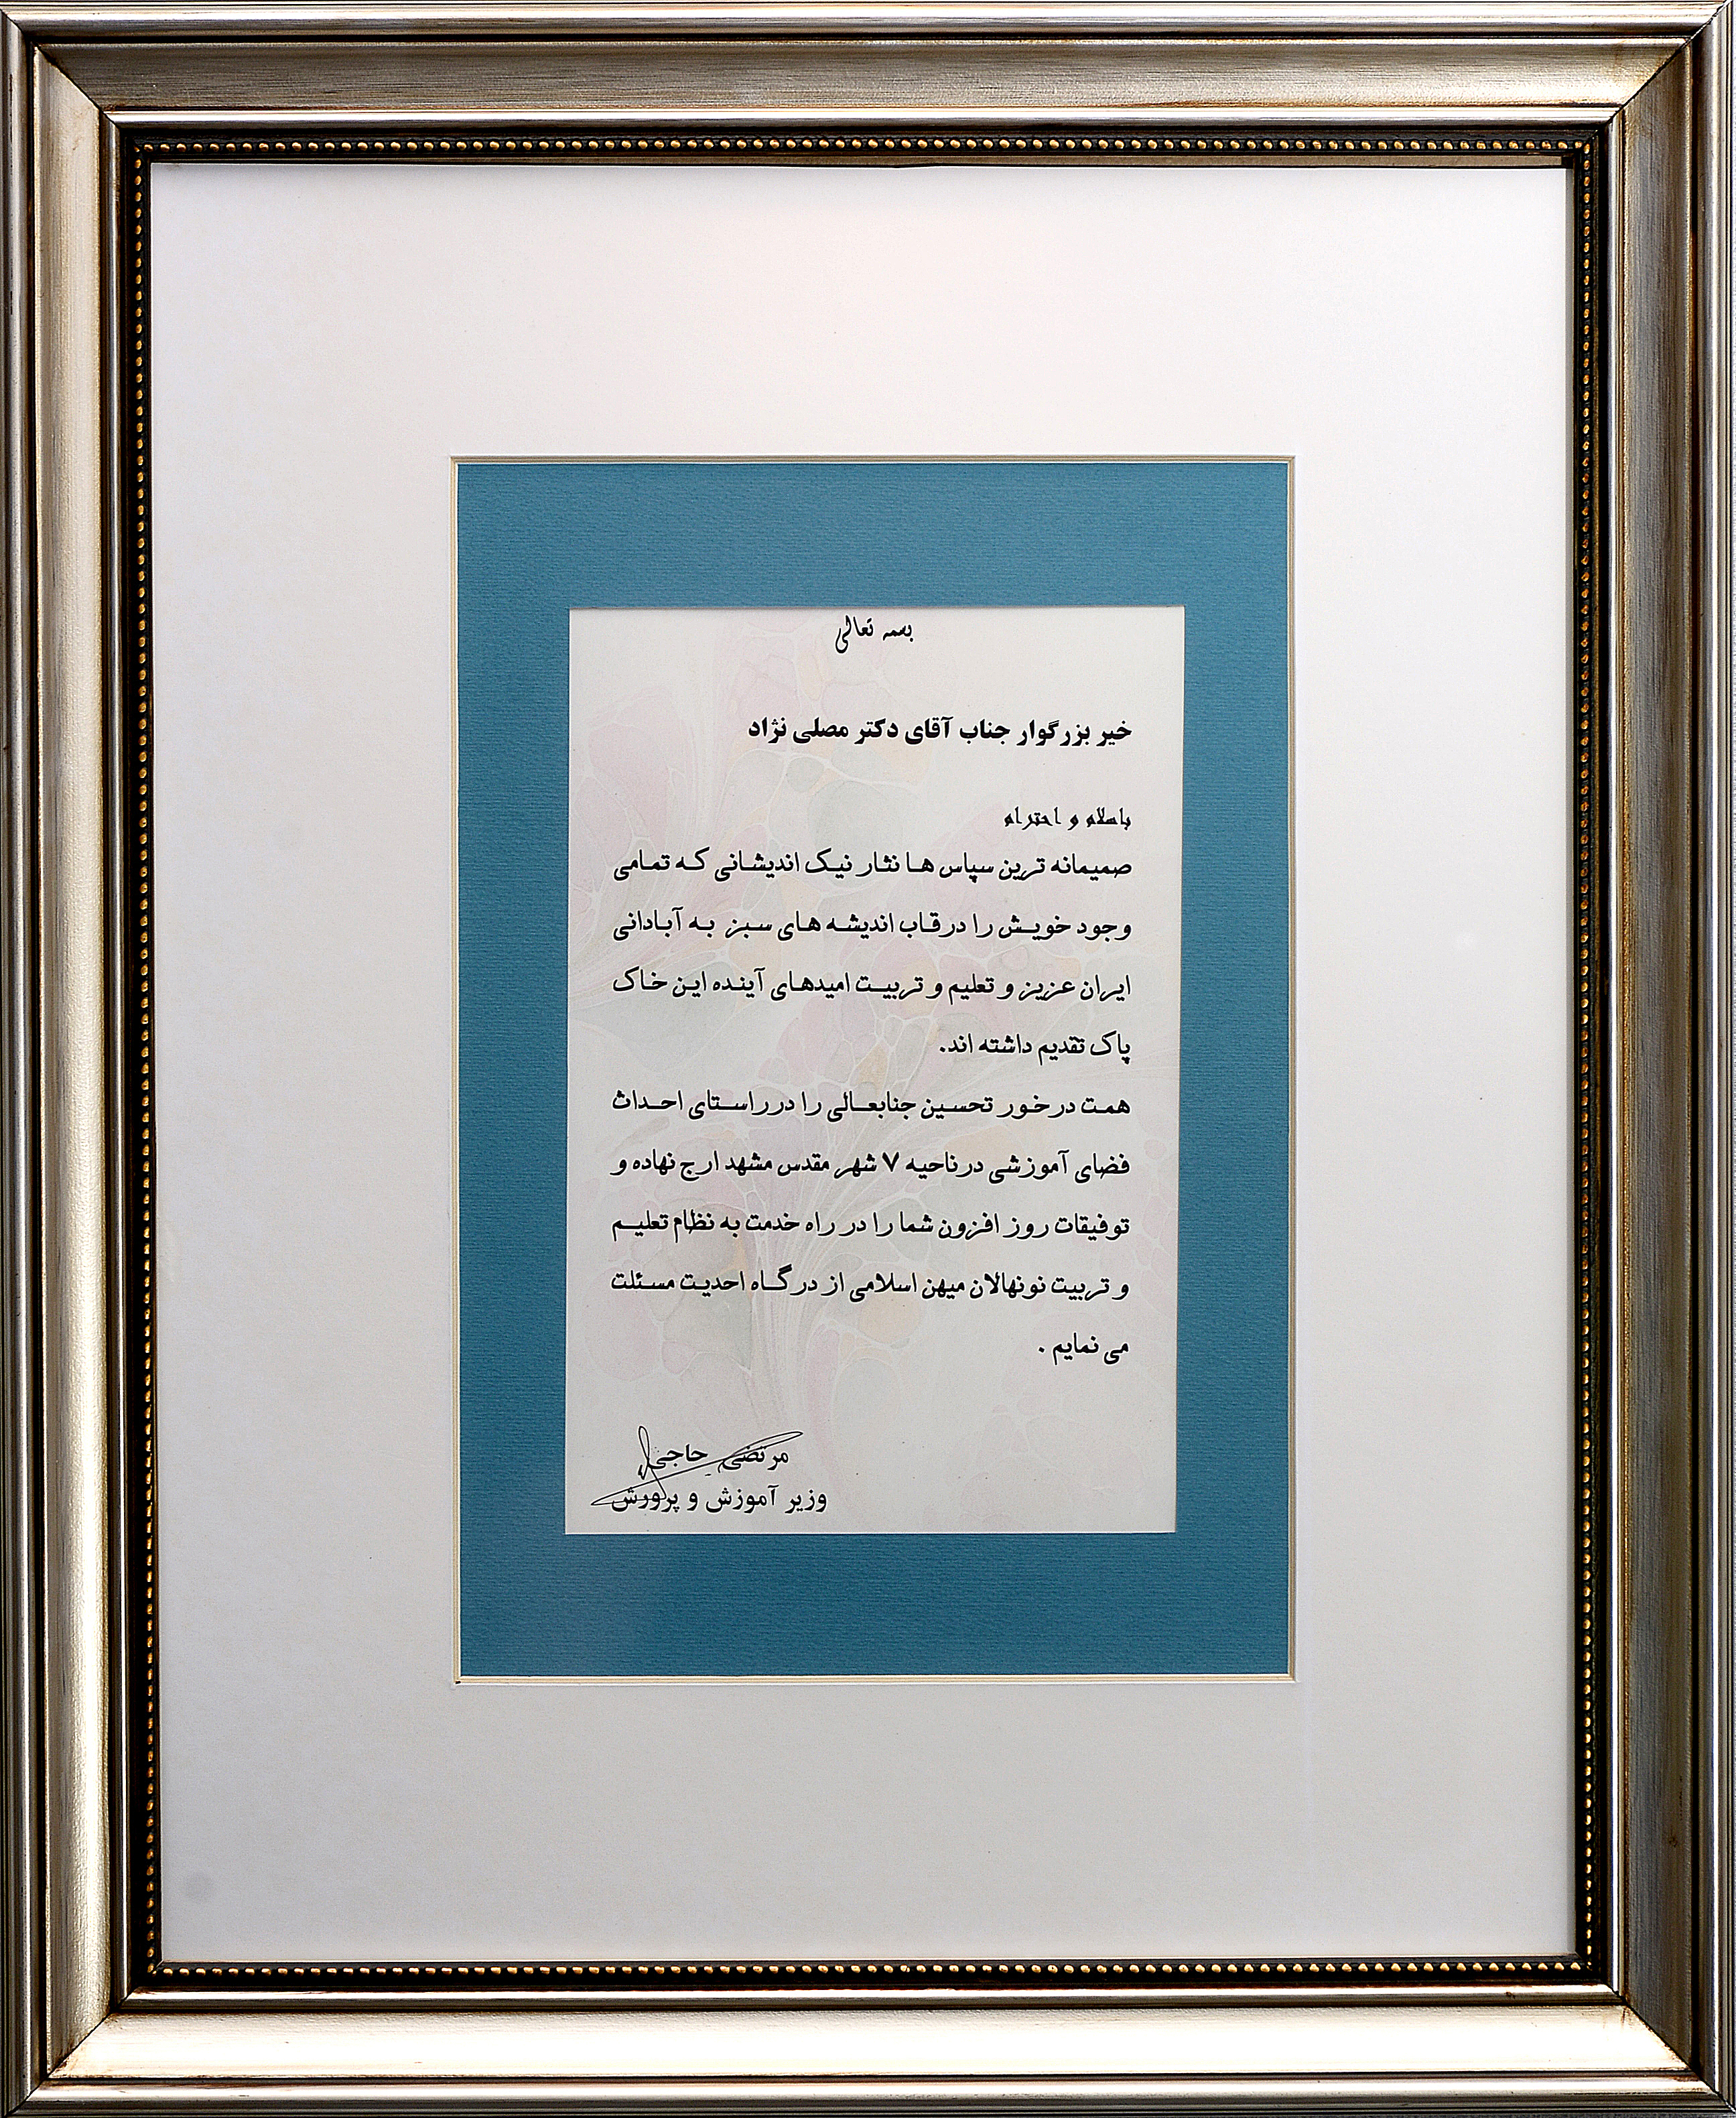 بسمه تعالی
خیر بزرگوار جناب آقای دکتر مصلی نژاد
باسلام و احترام
صمیمانه ترین سپاس ها نثار نیک اندیشانی که تمامی
وجود خویش را درقاب اندیشه های سبز به آبادانی
ایران عزیز و تعلیم و تربیت امیدهای آینده این خاک
پاک تقدیم داشته اند.
همت درخور تحسین جنابعالی را درراستای احداث
فضای آموزشی درناحیه ۷ شهر مقدس مشهد ارج نهاده و
توفیقات روز افزون شما را در راه خدمت به نظام تعلیم
و تربیت نونهالان میهن اسلامی از درگاه احدیت مسئلت
می نمایم .
مرتضی حاجی
وزیر آموزش و پرورش